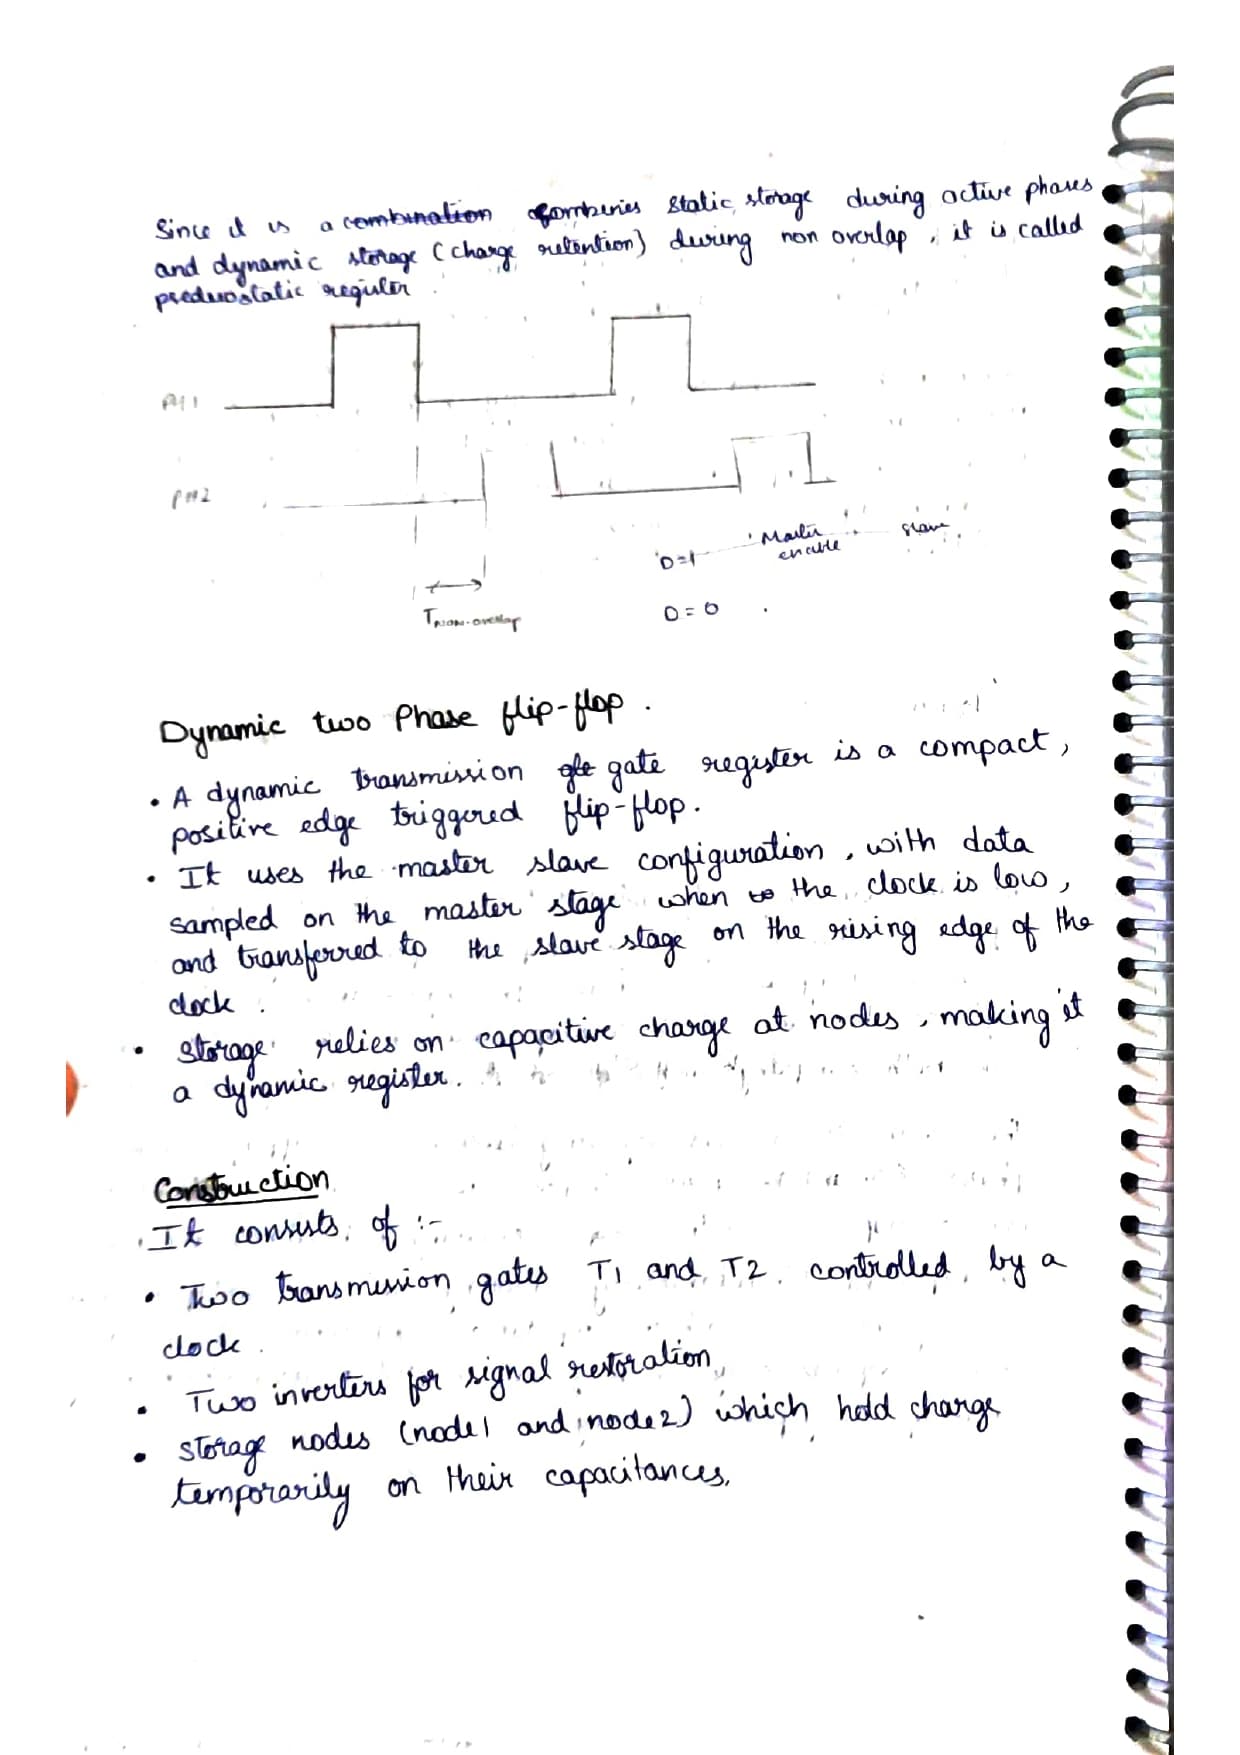 Since it is a combination combines static storage during active phases
and dynamic storage (charge retention) during non overlap, it is called
register
PH1
PH2
D=1 Master enable slave
TNON-overlap
D = 0
Dynamic two Phase flip-flop.
• A dynamic transmission gate register is a compact,
positive edge triggered flip-flop.
• It uses the master slave configuration, with data
sampled on the master stage when the clock is low,
and transferred to the slave stage on the rising edge of the
clock.
• Storage relies on capacitive charge at nodes, making it
a dynamic register.
Construction
It consists of :-
• Two transmission gates T1 and T2 controlled by a
clock.
• Two inverters for signal restoration
• storage nodes (node1 and node2) which hold charge
temporarily on their capacitances.